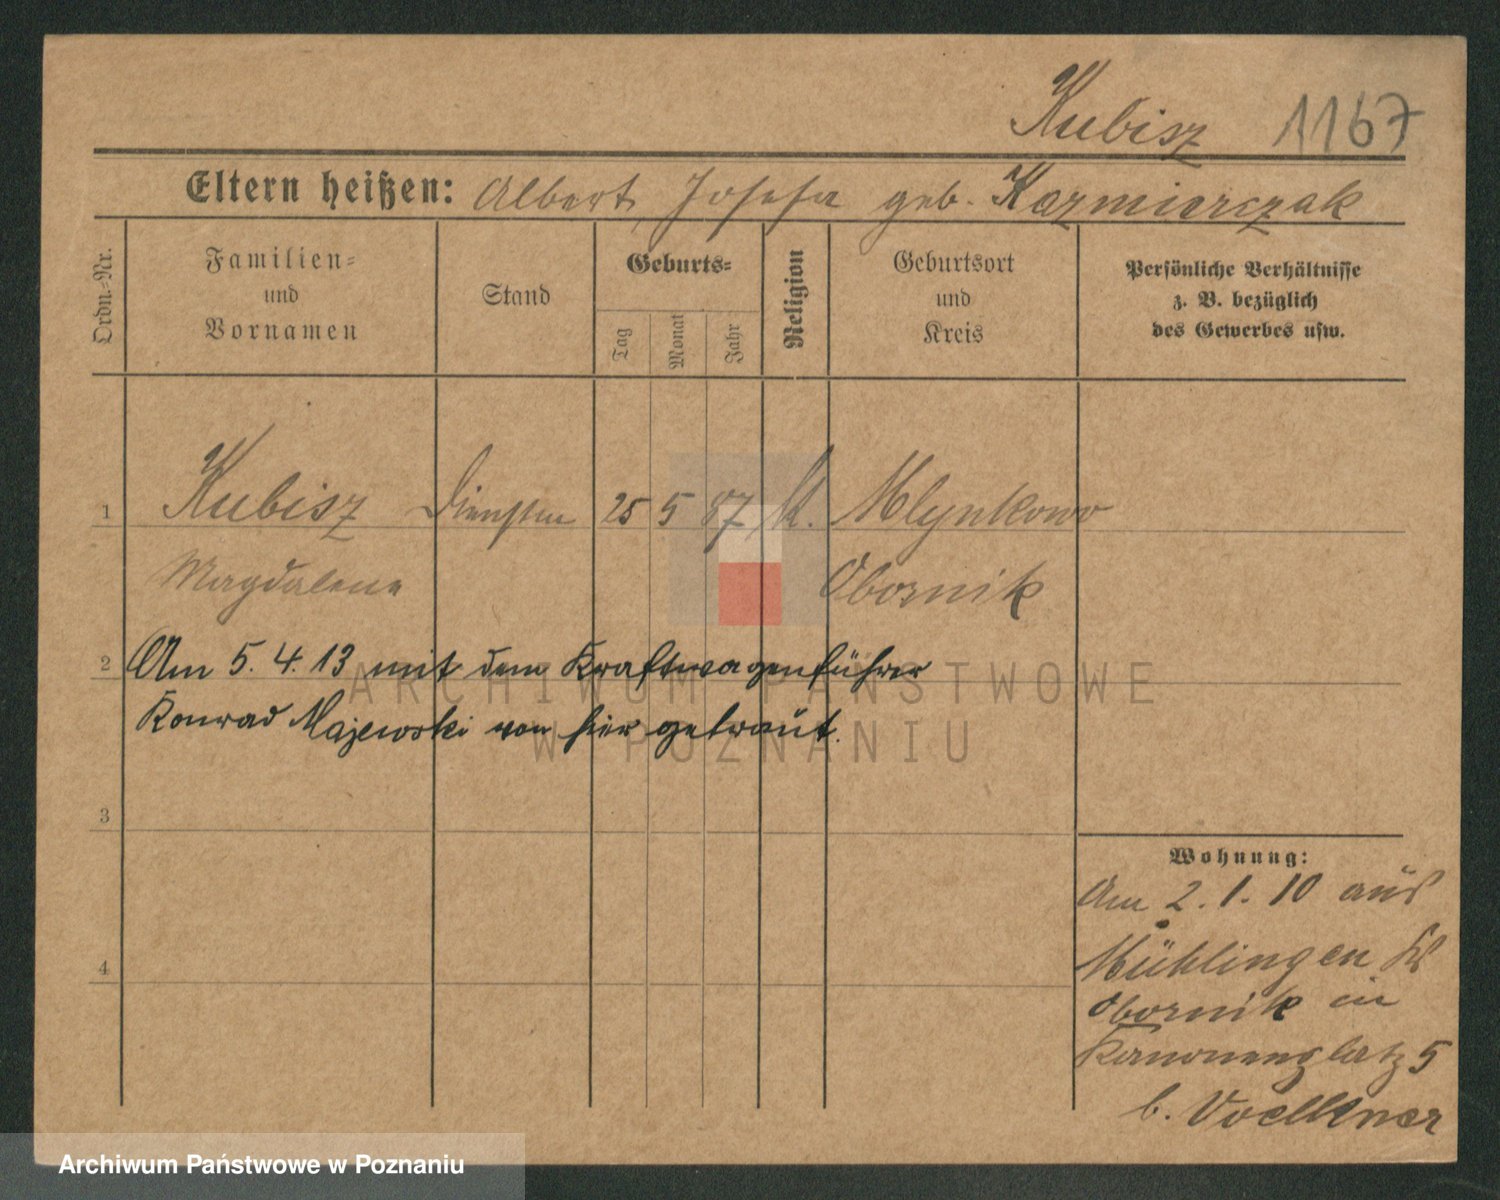 Kubisz 1167
Eltern heißen: Albert, Josefa geb. Kazmierczak
Ordn.-Nr.
Familien-
und
Vornamen
Stand
Geburts-
Tag
Monat
Jahr
Religion
Geburtsort
und
Kreis
Persönliche Verhältnisse
z. B. bezüglich
des Gewerbes usw.
1 Kubisz 25 5 87 k. Mlynkowo
Magdalena Obornik
2 Am 5. 4. 13 mit dem Kraftwagenführer
Konrad Majewski von hier getraut.
3
4
Wohnung:
Am 2. 1. 10 aus
Mühlingen Kr
Obornik in
Kanonenplatz 5
b. Voelkner
ARCHIWUM PAŃSTWOWE
W POZNANIU
Archiwum Państwowe w Poznaniu